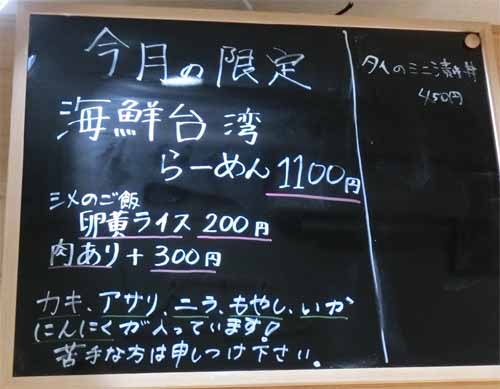 今月の限定
海鮮台湾
らーめん 1100円
シメのご飯
卵黄ライス 200円
肉あり + 300円
カキ、アサリ、ニラ、もやし、いか
にんにくが入っています!
苦手な方は申しつけ下さい.
タイのミニ漬け丼
450円